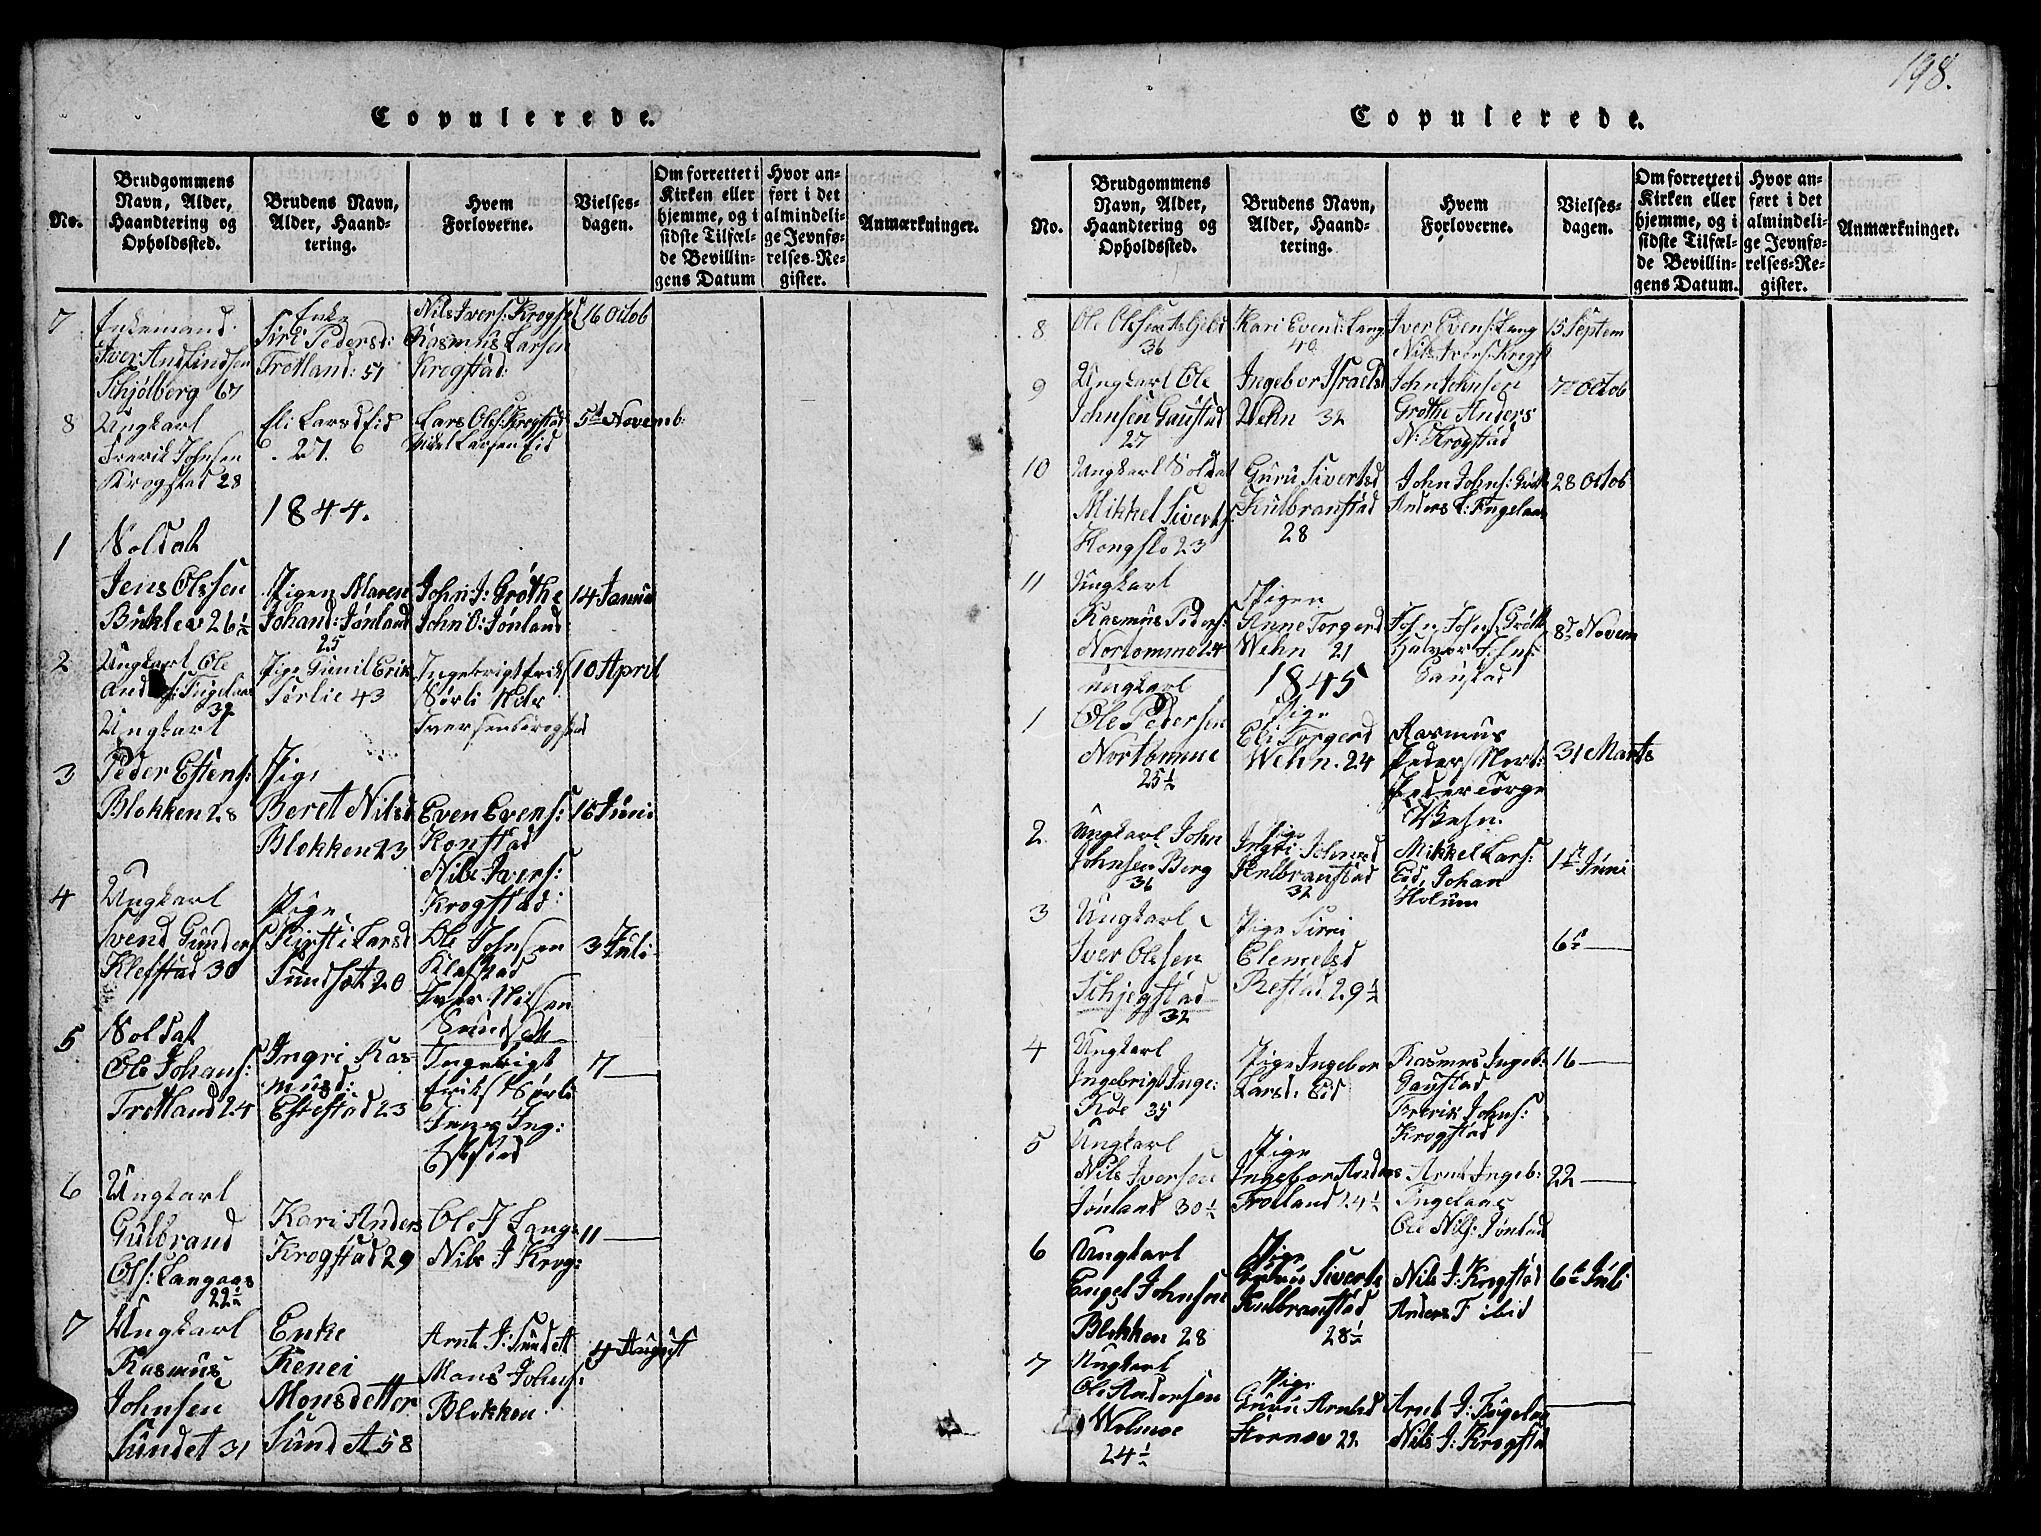 198.
Copulerede.
No.
Brudgommens
Navn, Alder,
Haandtering og
Opholdssted.
Brudens Navn,
Alder, Haand-
tering.
Hvem
Forloverne.
Vielses-
dagen.
Om forrettet i
Kirken eller
hjemme, og i
sidste Tilfæl-
de Bevillin-
gens Datum
Hvor an-
ført i det
almindeli-
ge Jevnfø-
relses-Re-
gister.
Anmærkninger.
7
Enkemand
Iver Amundsen
Schjølberg 67
Enke
Siri Pedersd:
Trotland: 51
Nils Ivers: Krogs
Rasmus Larsen
Krogstad:
16 Octob
8
Ungkarl
Frerik Johnsen
Krogstad 28
Eli Larsd Eid
27.
Lars Ols: Krogstad
Mikel Larsen Eid
5te Novemb:
1844.
1
Soldat
Jens Olssen
Buklev 26½
Pigen Maren
Johand: Jønland
25
John J: Grøthe
John O: Jønland
14 Janua
2
Ungkarl Ole
And: Fugelaas
32
Pige Gunil Erik
Sørlie 43
Ingebrigt Eriks
Sørli Nils
Iversen Krogstad
10 April
3
Ungkarl
Peder Estens:
Blokken 28
Pige
Beret Nilsd
Blokken 23
Even Evens:
Konstad
Nils Ivers:
Krogstad:
16 Juni
4
Ungkarl
Svend Gunders
Klefstad 30
Pige
Kirsti Larsd
Sundset 20
Ole Johnsen
Klefstad
Iver Nilsen
Sundset
3 Juli
5
Soldat
Ole Johans:
Trotland 24
Ingri Ras-
musd:
Estestad 23
Ingebrigt
Eriks Sørli
Jens Ing:
Estestad
7 —
6
Ungkarl
Gulbrand
Ols: Langaas
22½
Kari Anders
Krogstad 29
Ole J Lang:
Nils J Krog:
11 —
7
Ungkarl
Rasmus
Johnsen
Sundet 31
Enke
Renei
Monsdetter
Sundet 58
Arnt J: Sundet
Mons Johns:
Blokken
4 August
Copulerede.
No.
Brudgommens
Navn, Alder,
Haandtering og
Opholdssted.
Brudens Navn,
Alder, Haand-
tering.
Hvem
Forloverne.
Vielses-
dagen.
Om forrettet i
Kirken eller
hjemme, og i
sidste Tilfæl-
de Bevillin-
gens Datum.
Hvor an-
ført i det
almindeli-
ge Jevnfø-
relses-Re-
gister.
Anmærkninger.
8
Ole Olssen
36
Kari Evens: Lang
40
Iver Evens: Lang
Nils Ivers: Krogst
15 Septem
9
Ungkarl Ole
Johnsen Gaustad
27
Ingebor Israelsd
Wehn 32
John Johnsen
Grøthe Anders
N: Krogstad
7de Octob
10
Ungkarl Soldat
Mikkel Siverts:
Kongslo 23
Guru Sivertsd
Kulbranstad
28
John Johns: Grøth
Anders L: Fugelaas
28 Octob
11
Ungkarl
Rasmus Peders:
Nortomme 24
Pigen
Anne Torgersd
Wehn 21
John Johns: Grøth
Halvor Johns:
Gaustad
8de Novem
1845
1
Ungkarl
Ole Pedersen
Nortomme
25½
Pige
Eli Torgersd
Wehn. 24
Rasmus
Peders Nort:
Peder Torge
Wehn.
31 Marts
2
Ungkarl John
Johnsen Berg
36
Pige
Ingri Johnsd
Kulbranstad
32
Mikkel Lars:
Eid, Johan
Holum
1ste Juni
3
Ungkarl
Iver Olssen
Schjegstad
32
Pige Siri
Clemetsd
Restad 29½
6te —
4
Ungkarl
Ingebrigt Inge:
Røe 35
Pige Ingebor
Larsd: Eid
Rasmus Ingeb:
Gaustad
Frerik Johns:
Krogstad
16 —
5
Ungkarl
Nils Iversen
Jønland 30½
Pige
Ingebor Anders
Trotland 24½
Arnt Ingeb:
Fugelaas
Ole Nils: Jønland
22 —
6
Ungkarl
Engel Johnsen
Blokken 28
Pige
Guru Siverts
Kulbranstad
28½
Nils J: Krogstad
Anders F ibid
6te Juli
7
Ungkarl
Ole Andersen
Wolmoe
24½
Pige
Guru Arntsd
Størmoe 22.
Arnt J: Fugelaa
Nils J: Krogstad
—